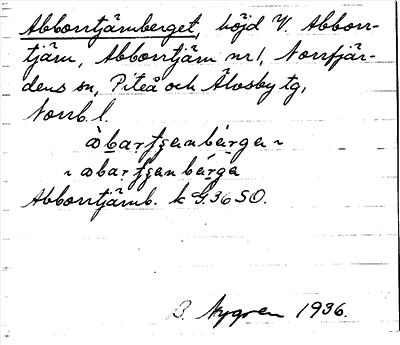 Abborrtjärnberget, höjd V. Abborr-
tjärn, Abborrtjärn nr 1, Norrfjär-
dens sn, Piteå och Älvsby tg,
Norrb. l.
àbartʃɛnbɛ́rga ~
~ abartʃɛnbɛ́rga
Abborrtjärnb. k G.36 SO.
B. Nygren 1936.